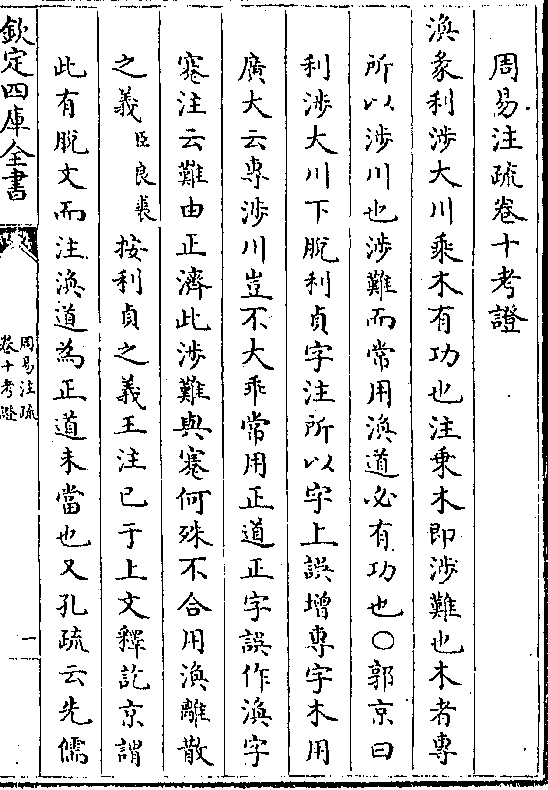 周易注疏卷十考證
渙彖利涉大川乘木有功也注乘木即涉難也木者專
所以涉川也涉難而常用渙道必有功也○郭京曰
利涉大川下脫利貞字注所以字上誤增專字木用
廣大云專涉川豈不大乖常用正道正字誤作渙字
蹇注云難由正濟此涉難與蹇何殊不合用渙離散
之義臣良裘按利貞之義王注已于上文釋訖京謂
此有脫文而注渙道為正道未當也又孔疏云先儒
欽定四庫全書
周易注疏
卷十考證
一